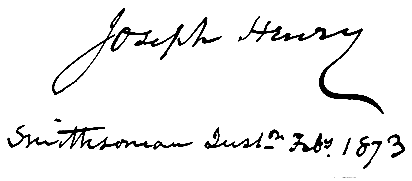 Joseph Henry
Smithsonian Instn. Feby. 1873